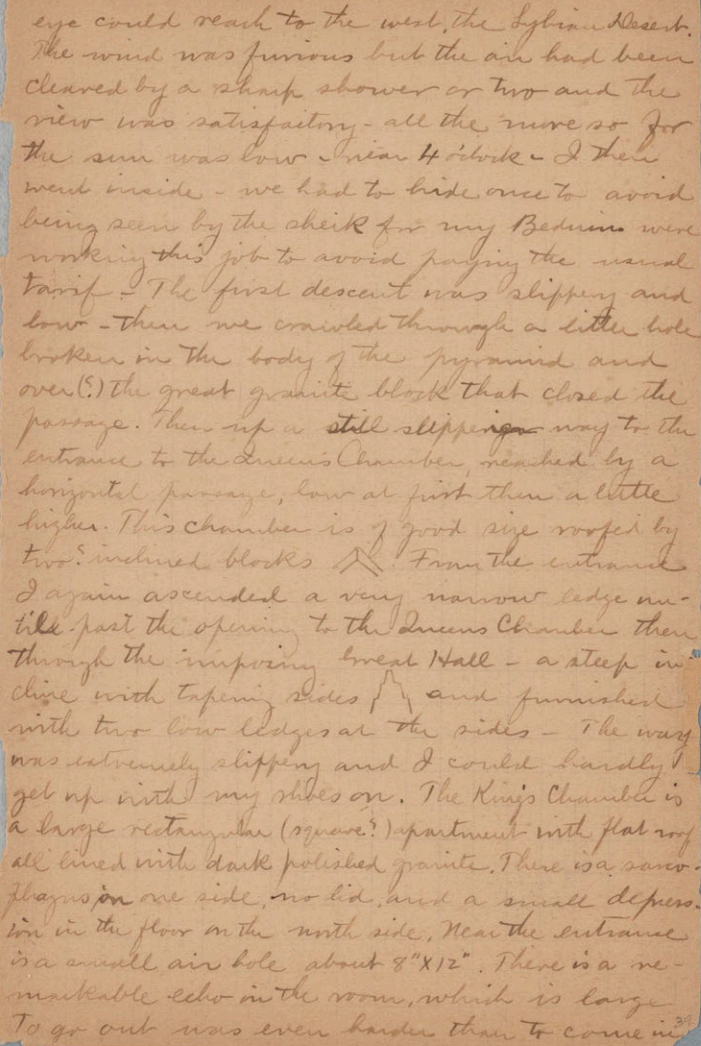 eye could reach to the west, the Lybian Desert.
The wind was furious but the air had been
cleared by a sharp shower or two and the
view was satisfactory - all the more so for
the sun was low - near 4 o'clock - I then
went inside - we had to hide once to avoid
being seen by the sheik for my Beduins were
working this job to avoid paying the usual
tarif - The first descent was slippery and
low - then we crawled through a little hole
broken in the body of the pyramid and
over (?) the great granite block that closed the
passage. Then up a still slippery way to the
entrance to the Queen's Chamber, reached by a
horizontal passage, low at first then a little
higher. This chamber is of good size roofed by
two? inclined blocks . From the entrance
I again ascended a very narrow ledge un-
till past the opening to the Queens Chamber then
through the imposing Great Hall - a steep in-
cline with tapering sides and furnished
with two low ledges at the sides - The way
was extremely slippery and I could hardly
get up with my shoes on. The King's Chamber is
a large rectangular (square?) apartment with flat roof
all lined with dark polished granite. There is a sarco-
phagus on one side, no lid, and a small depress-
ion in the floor on the north side. Near the entrance
is a small air hole about 8" x 12". There is a re-
markable echo in the room, which is large
To go out was even harder than to come in
39